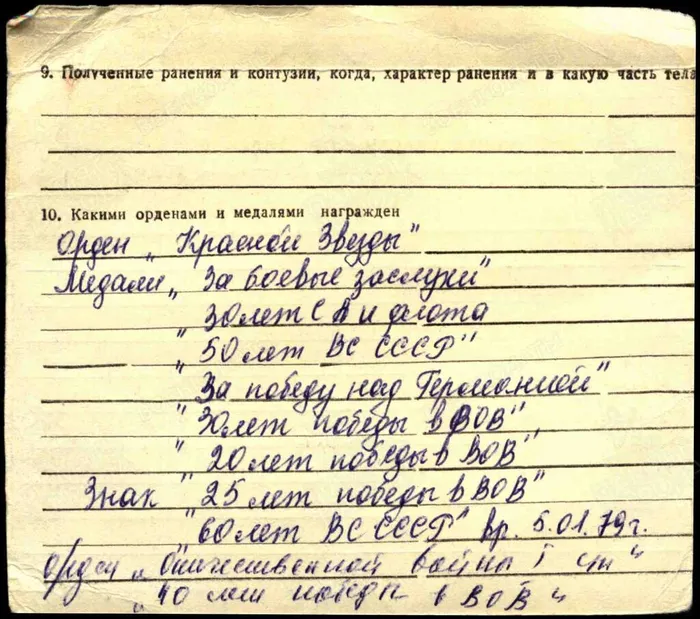 9. Полученные ранения и контузии, когда, характер ранения и в какую часть тела
10. Какими орденами и медалями награжден
Орден „ Красной Звезды"
Медали „ За боевые заслуги"
" 30 лет С А и флота
" 50 лет ВС СССР"
" За победу над Германией"
" 30 лет победы в ВОВ"
" 20 лет победы в ВОВ"
Знак " 25 лет победы в ВОВ"
" 60 лет ВС СССР" вр. 5.01.79 г.
Орден „ Отечественной войны I ст "
„ 40 лет победы в ВОВ "